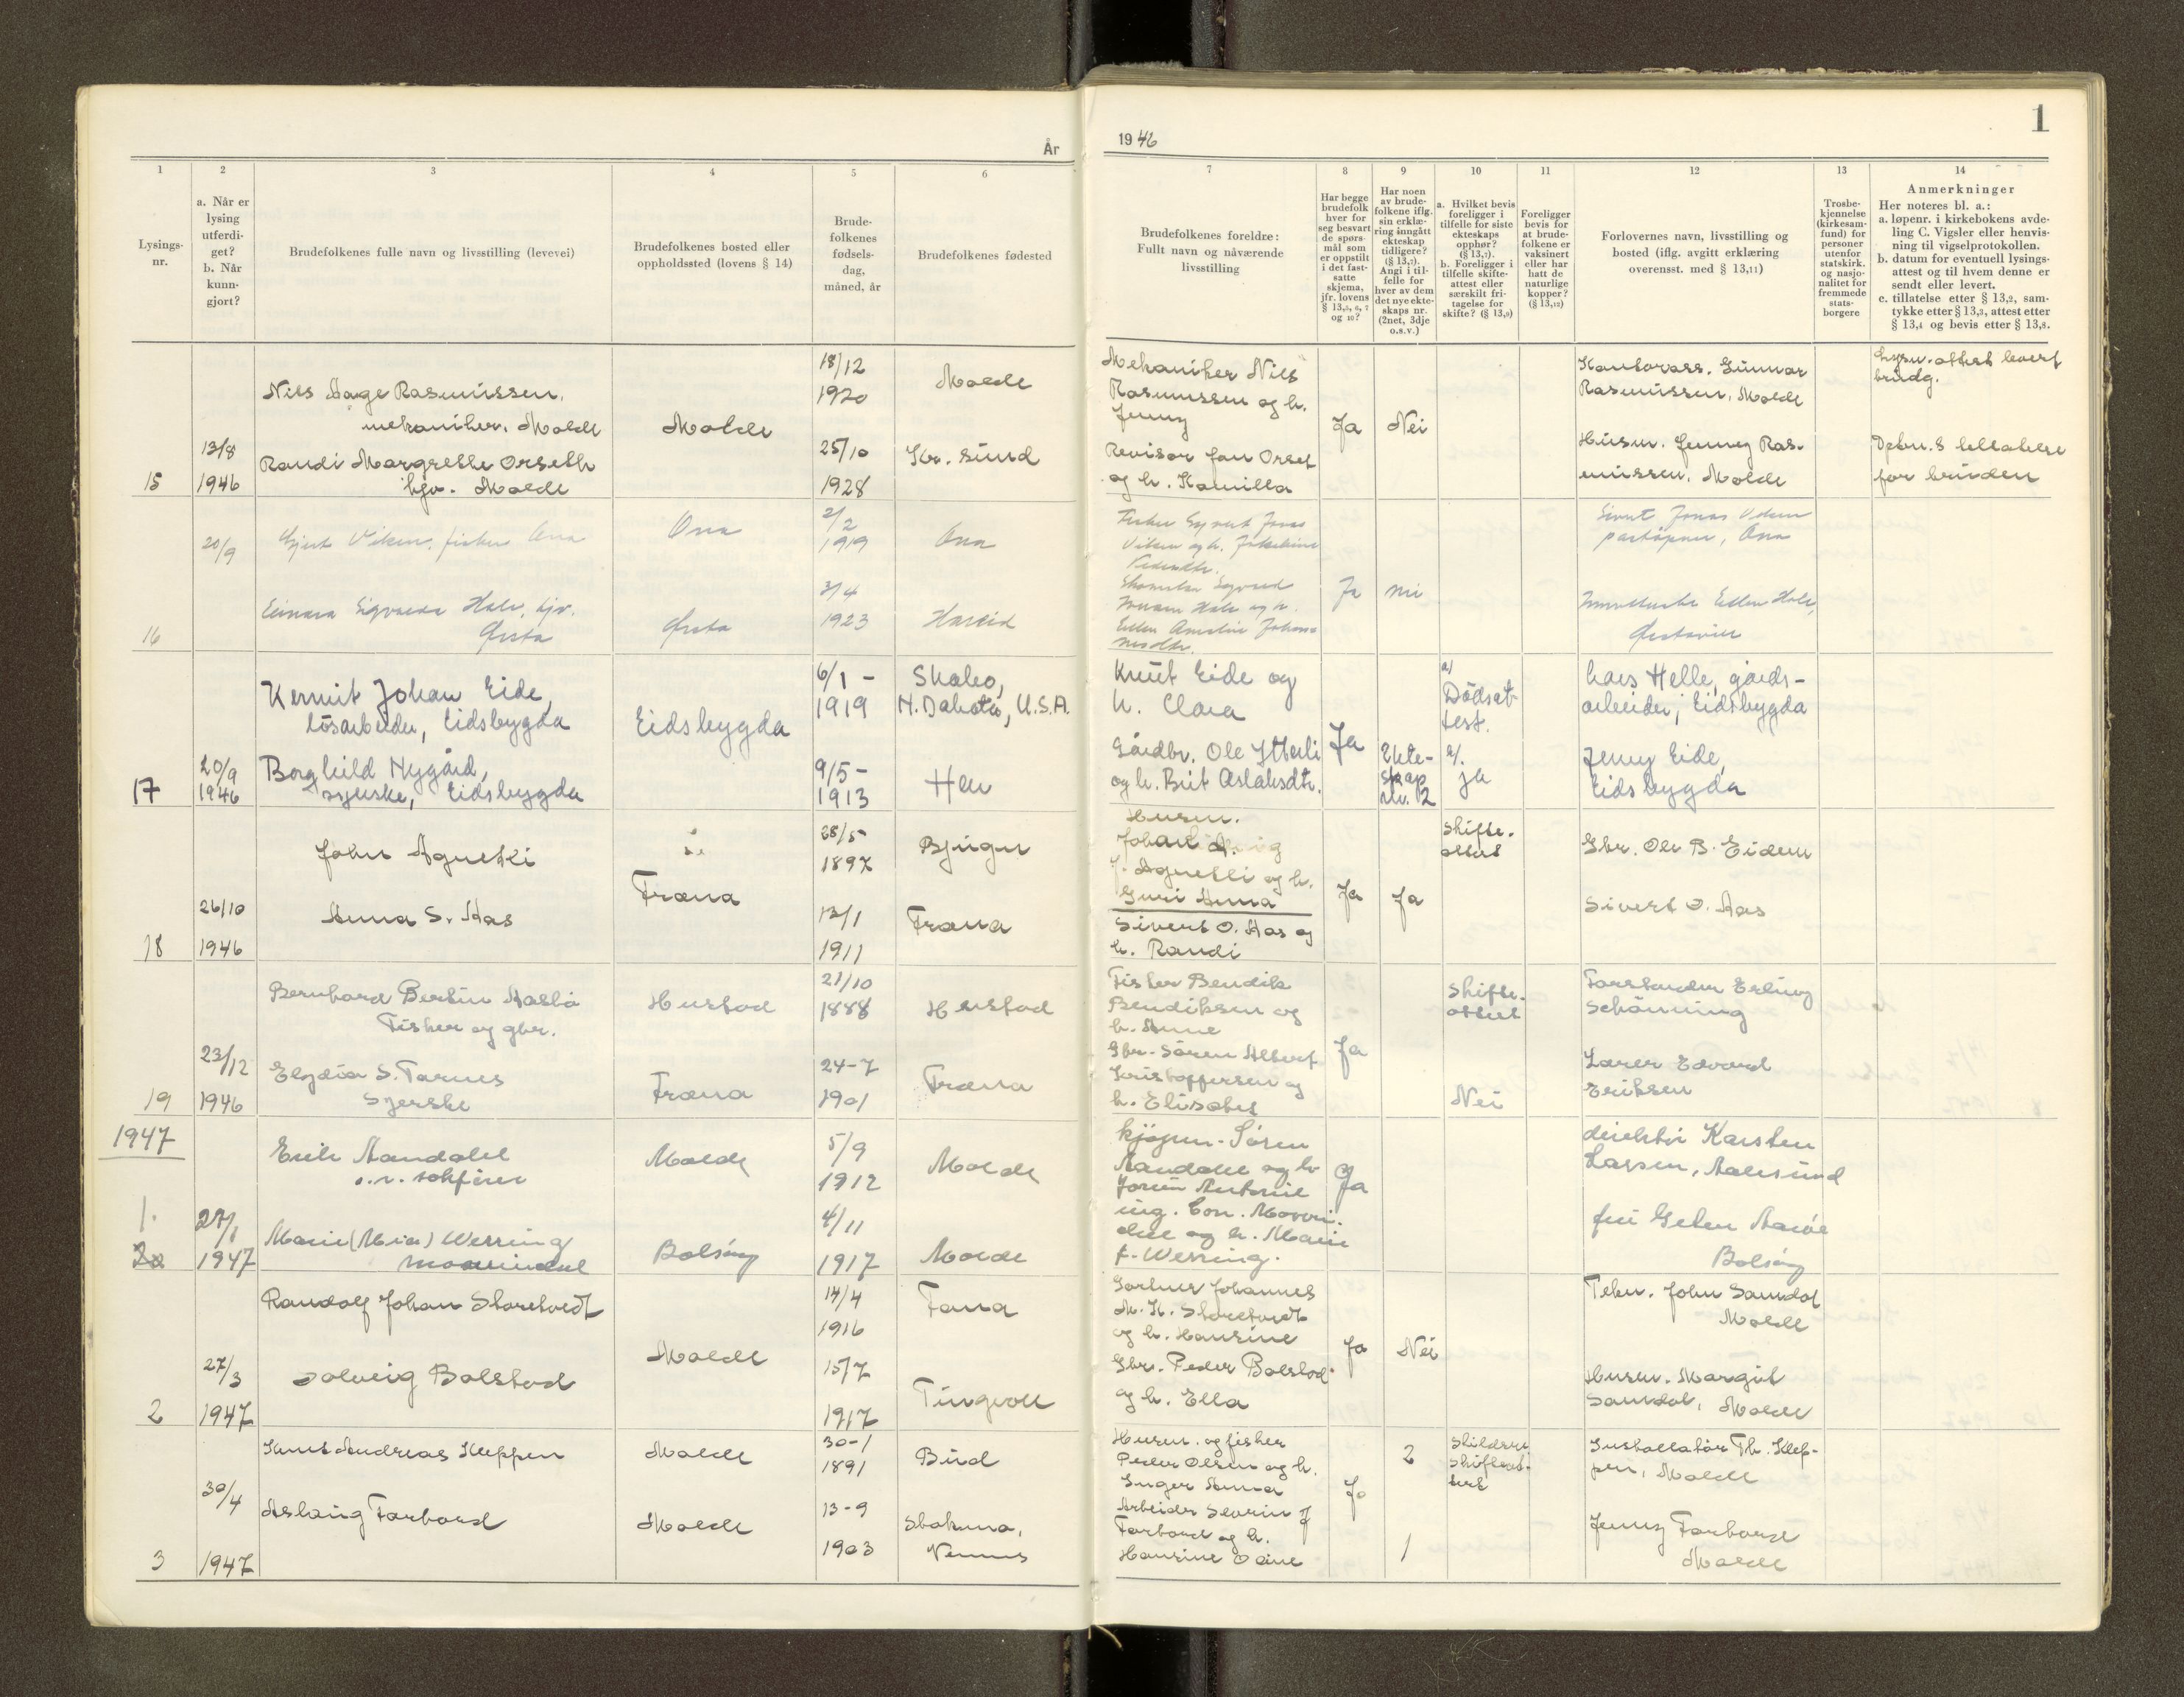 År
1946
1
1
2
3
4
5
6
7
8
9
10
11
12
13
14
Lysings-
nr.
a. Når er
lysing
utferdi-
get?
b. Når
kunn-
gjort?
Brudefolkenes fulle navn og livsstilling (levevei)
Brudefolkenes bosted eller
oppholdssted (lovens § 14)
Brude-
folkenes
fødsels-
dag,
måned, år
Brudefolkenes fødested
Brudefolkenes foreldre:
Fullt navn og nåværende
livsstilling
Har begge
brudefolk
hver for
seg besvart
de spørs-
mål som
er oppstilt
i det fast-
satte
skjema,
jfr. lovens
§ 13,5, 6, 7
og 10?
Har noen
av brude-
folkene iflg.
sin erklæ-
ring inngått
ekteskap
tidligere?
(§ 13,7).
Angi i til-
felle for
hver av dem
det nye ekte-
skaps nr.
(2net, 3dje
o.s.v.)
a. Hvilket bevis
foreligger i
tilfelle for siste
ekteskaps
opphør?
(§ 13,7).
b. Foreligger i
tilfelle skifte-
attest eller
særskilt fri-
tagelse for
skifte? (§ 13,9)
Foreligger
bevis for
at brude-
folkene er
vaksinert
eller har
hatt de
naturlige
kopper?
(§ 13,12)
Forlovernes navn, livsstilling og
bosted (iflg. avgitt erklæring
overensst. med § 13,11)
Trosbe-
kjennelse
(kirkesam-
fund) for
personer
utenfor
statskirk.
og nasjo-
nalitet for
fremmede
stats-
borgere
Anmerkninger
Her noteres bl. a.:
a. løpenr. i kirkebokens avde-
ling C. Vigsler eller henvis-
ning til vigselprotokollen.
b. datum for eventuell lysings-
attest og til hvem denne er
sendt eller levert.
c. tillatelse etter § 13,2, sam-
tykke etter § 13,3, attest etter
§ 13,4 og bevis etter § 13,8.
15
13/8
1946
Nils Aage Rasmussen,
mekaniker, Molde
Randi Margrethe Orseth
hjv. Molde
Molde
18/12
1920
25/10
1928
Molde
Kr. sund
Mekaniker Nils
Rasmussen og h.
Jenny
Revisor Jan Orset
og h. Kamilla
Ja
Nei
Kontorass. Gunnar
Rasmussen, Molde
Husm. Jenny Ras-
mussen, Molde
Lysn. attest levert
brudg.
Depn.s tillatelse
for bruden
16
20/9
Viken, fisker Ona
Hole, hjv.
Ørsta
Ona
Ørsta
2/2
1919
3/4
1923
Ona
Hareid
Viken og h.
Ja
nei
Jonas Viken
Ona
Hole,
17
20/9
1946
Kermit Johan Eide,
løsarbeider, Eidsbygda
Borghild Nygård,
syerske, Eidsbygda
Eidsbygda
6/1 -
1919
9/5 -
1913
Skabo,
N. Dakota, U.S.A.
Hen
Knut Eide og
h. Clara
Gårdbr. Ole Ytterli
og h. Brit Aslaksdtr.
Ja
Ekte-
skap
nr. 2
a/
Dødsat-
test.
a/.
ja
Lars Helle, gårds-
arbeider, Eidsbygda
Jenny Eide,
Eidsbygda
18
26/10
1946
John Agnethi
Anna S. Aas
Fræna
28/5-
1897
12/1
1911
Bjugn
Fræna
Husm.
Johan
Agnethi og h.
Guri Anna
Sivert O. Aas og
h. Randi
Ja
Ja
Skifte-
attest
Gbr. Ole B. Eidem
Sivert O. Aas
19
23/12
1946
Bernhard Bertin Aasbø
Fisker og gbr.
Elydia S. Tornes
Syerske
Hustad
Fræna
21/10
1888
24-7
1901
Hustad
Fræna
Fisker Bendik
Bendiksen og
h. Anne
Gbr. Søren Albert
Kristoffersen og
h. Elisabet
Ja
Skifte-
attest
Nei
Forstander Erling
Schønning
Lærer Edvard
Eriksen
1947
1.
20
27/1
1947
Erik Aandahl
o.r. sakfører
Marie (Mia) Werring
Molde
Bolsøy
5/9
1912
4/11
1917
Molde
Molde
kjøpm. Søren
Aandahl og h
og h. Marie
f. Werring.
Ja
direktør Karsten
Larsen, Aalesund
Bolsøy
2
27/3
1947
Randolf Johan Storetvedt
Solveig Bolstad
Molde
14/4
1916
15/7
1917
Fana
Tingvoll
Gartner Johannes
M. K. Storetvedt
og h. Hansine
Gbr. Peder Bolstad
og h. Ella
Ja
Nei
John Sandal
Molde
Husm. Margit
Sandal, Molde
3
30/4
1947
Knut Andreas Kleppen
Aslaug Farbord
Molde
Molde
30-1
1891
13-9
1903
Bud
Stokmo,
Vemnes
Husm. og fisker
Peder Olsen og h.
Inger Anna
Arbeider Severin J
Farbord og h.
Hansine
Ja
2
1
Skilsm.
Skifteat-
test
Installatør Th. Klep-
pen, Molde
Jenny Farbord
Molde